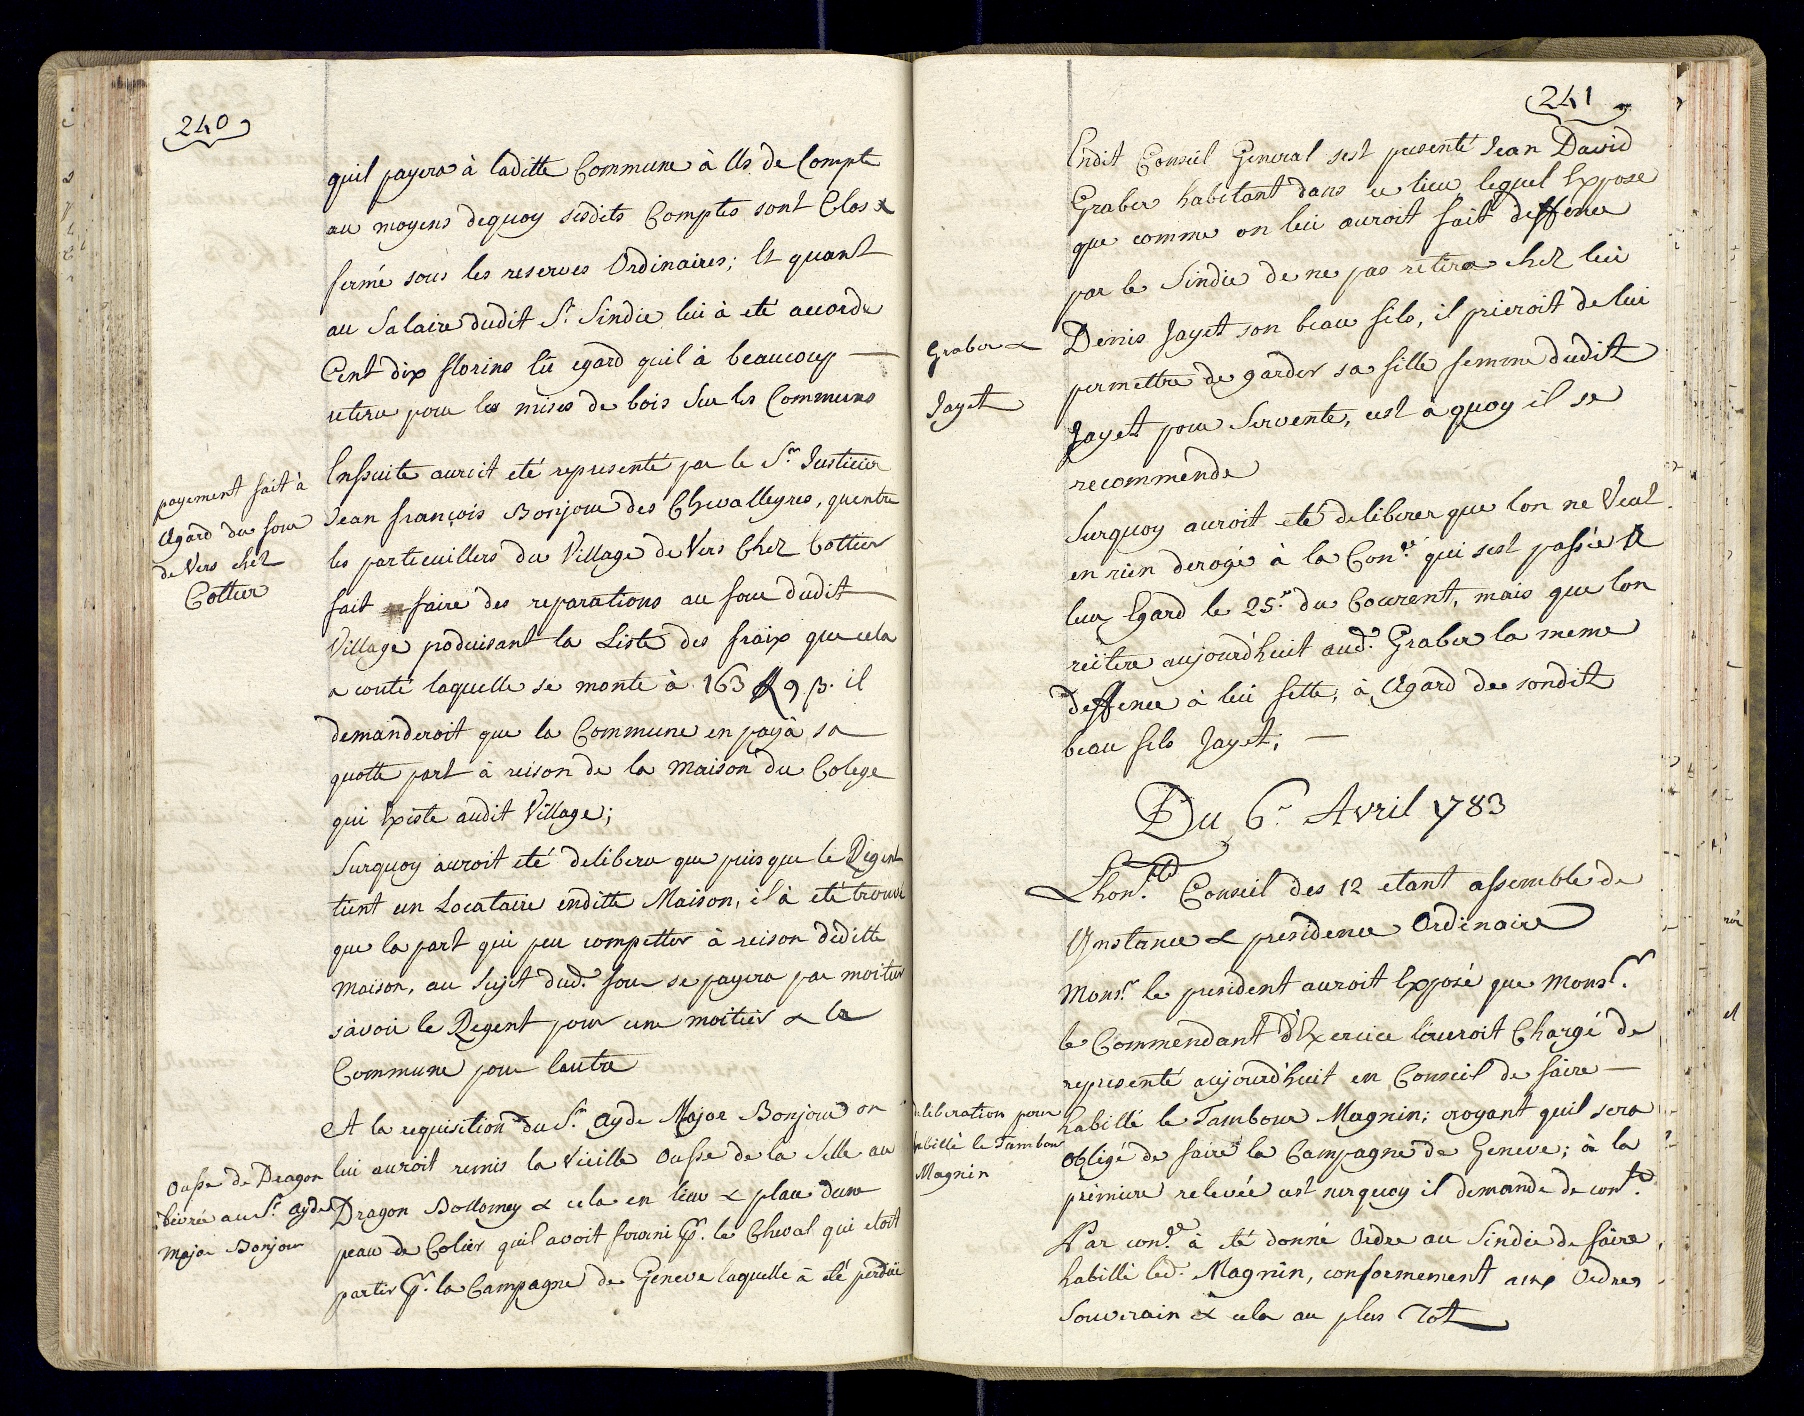 240
quil payera à laditte Commune à Us de Compte
au moyens dequoy sesdits Comptes sont Clos &
fermé sous les reserves Ordinaires; Et quant
au Salaire dudit Sr. Sindic lui à eté accorde
Cent dix florins eü egard quil à beaucoup —
retiru pour les mises de bois Sur les Communs
payement fait à
Egard du four
de Vers chez
Cottier
Ensuite auroit eté representé par le Sr. Justicier
Jean françois Bonjour des Chevalleyres, quentre
les particuilliers du Village de Vers Chez Cottier
fait faire des reparations au four dudit
Village produisant la Liste des fraix que cela
a couté laquelle se monte à 163 fl 9 ß. il
demanderoit que la Commune en paÿa sa
quotte part à reison de la maison du Colege
qui Existe audit Village;
Surquoy auroit eté deliberu que puis que le Regent
tient un Locataire enditte Maison, il à eté trouvé
que la part qui peu competter à reison deditte
Maison, au Sujet dud. four se payera par moitier
savoir le Regent pour une moitier & la
Commune pour lautre
Ousse de Dragon
livrée au Sr. ayde
Major Bonjour
A la requisition du Sr. ayde Major Bonjour on
lui auroit remis la Vieille Ousse de la Selle au
Dragon Bollomey & cela en lieu & place dune
peau de Colier quil avoit fourni pr. le Cheval qui etoit
partir pr. la Campagne de Geneve laquelle à eté perdüe
241
Endit Conseil General sest presenté Jean David
Graber habitant dans ce lieu, lequel Expose
que comme on lui auroit fait deffence
par le Sindic de ne pas retirer chez lui
Graber &
Jayet
Denis Jayet son beau fils, il prieroit de lui
permettre de garder sa fille femme dudit
Jayet pour Servente, cest à quoy il se
recommende
Surquoy auroit eté deliberer que lon ne Veut
en rien derogé à la Conce. qui sest passée à
leur Egard le 25e. du Courent, mais que lon
reitere aujourdhuit aud. Graber la meme
deffence à lui fette, à Egard de sondit
beau fils Jayet; —
Du 6e Avril 1783
Lhonble. Conseil des 12 etant assemble de
Ynstance & presidence Ordinaire
Monsr. le president auroit Exposé que Monsr.
le Commendant d'Exercice lauroit Chargé de
representé aujourdhuit en Conseil de faire —
deliberation pour
habillé le Tambour
Magnin
habillé le Tambour Magnin; croyant quil sera
Obligé de faire la Campagne de Geneve; à la
premiere relevée cest surquoy il demande de conce.
Par conce. à eté donné Ordre au Sindic de faire
habillé led. Magnin, conformement aux Ordres
Souverain & cela au plus Tot